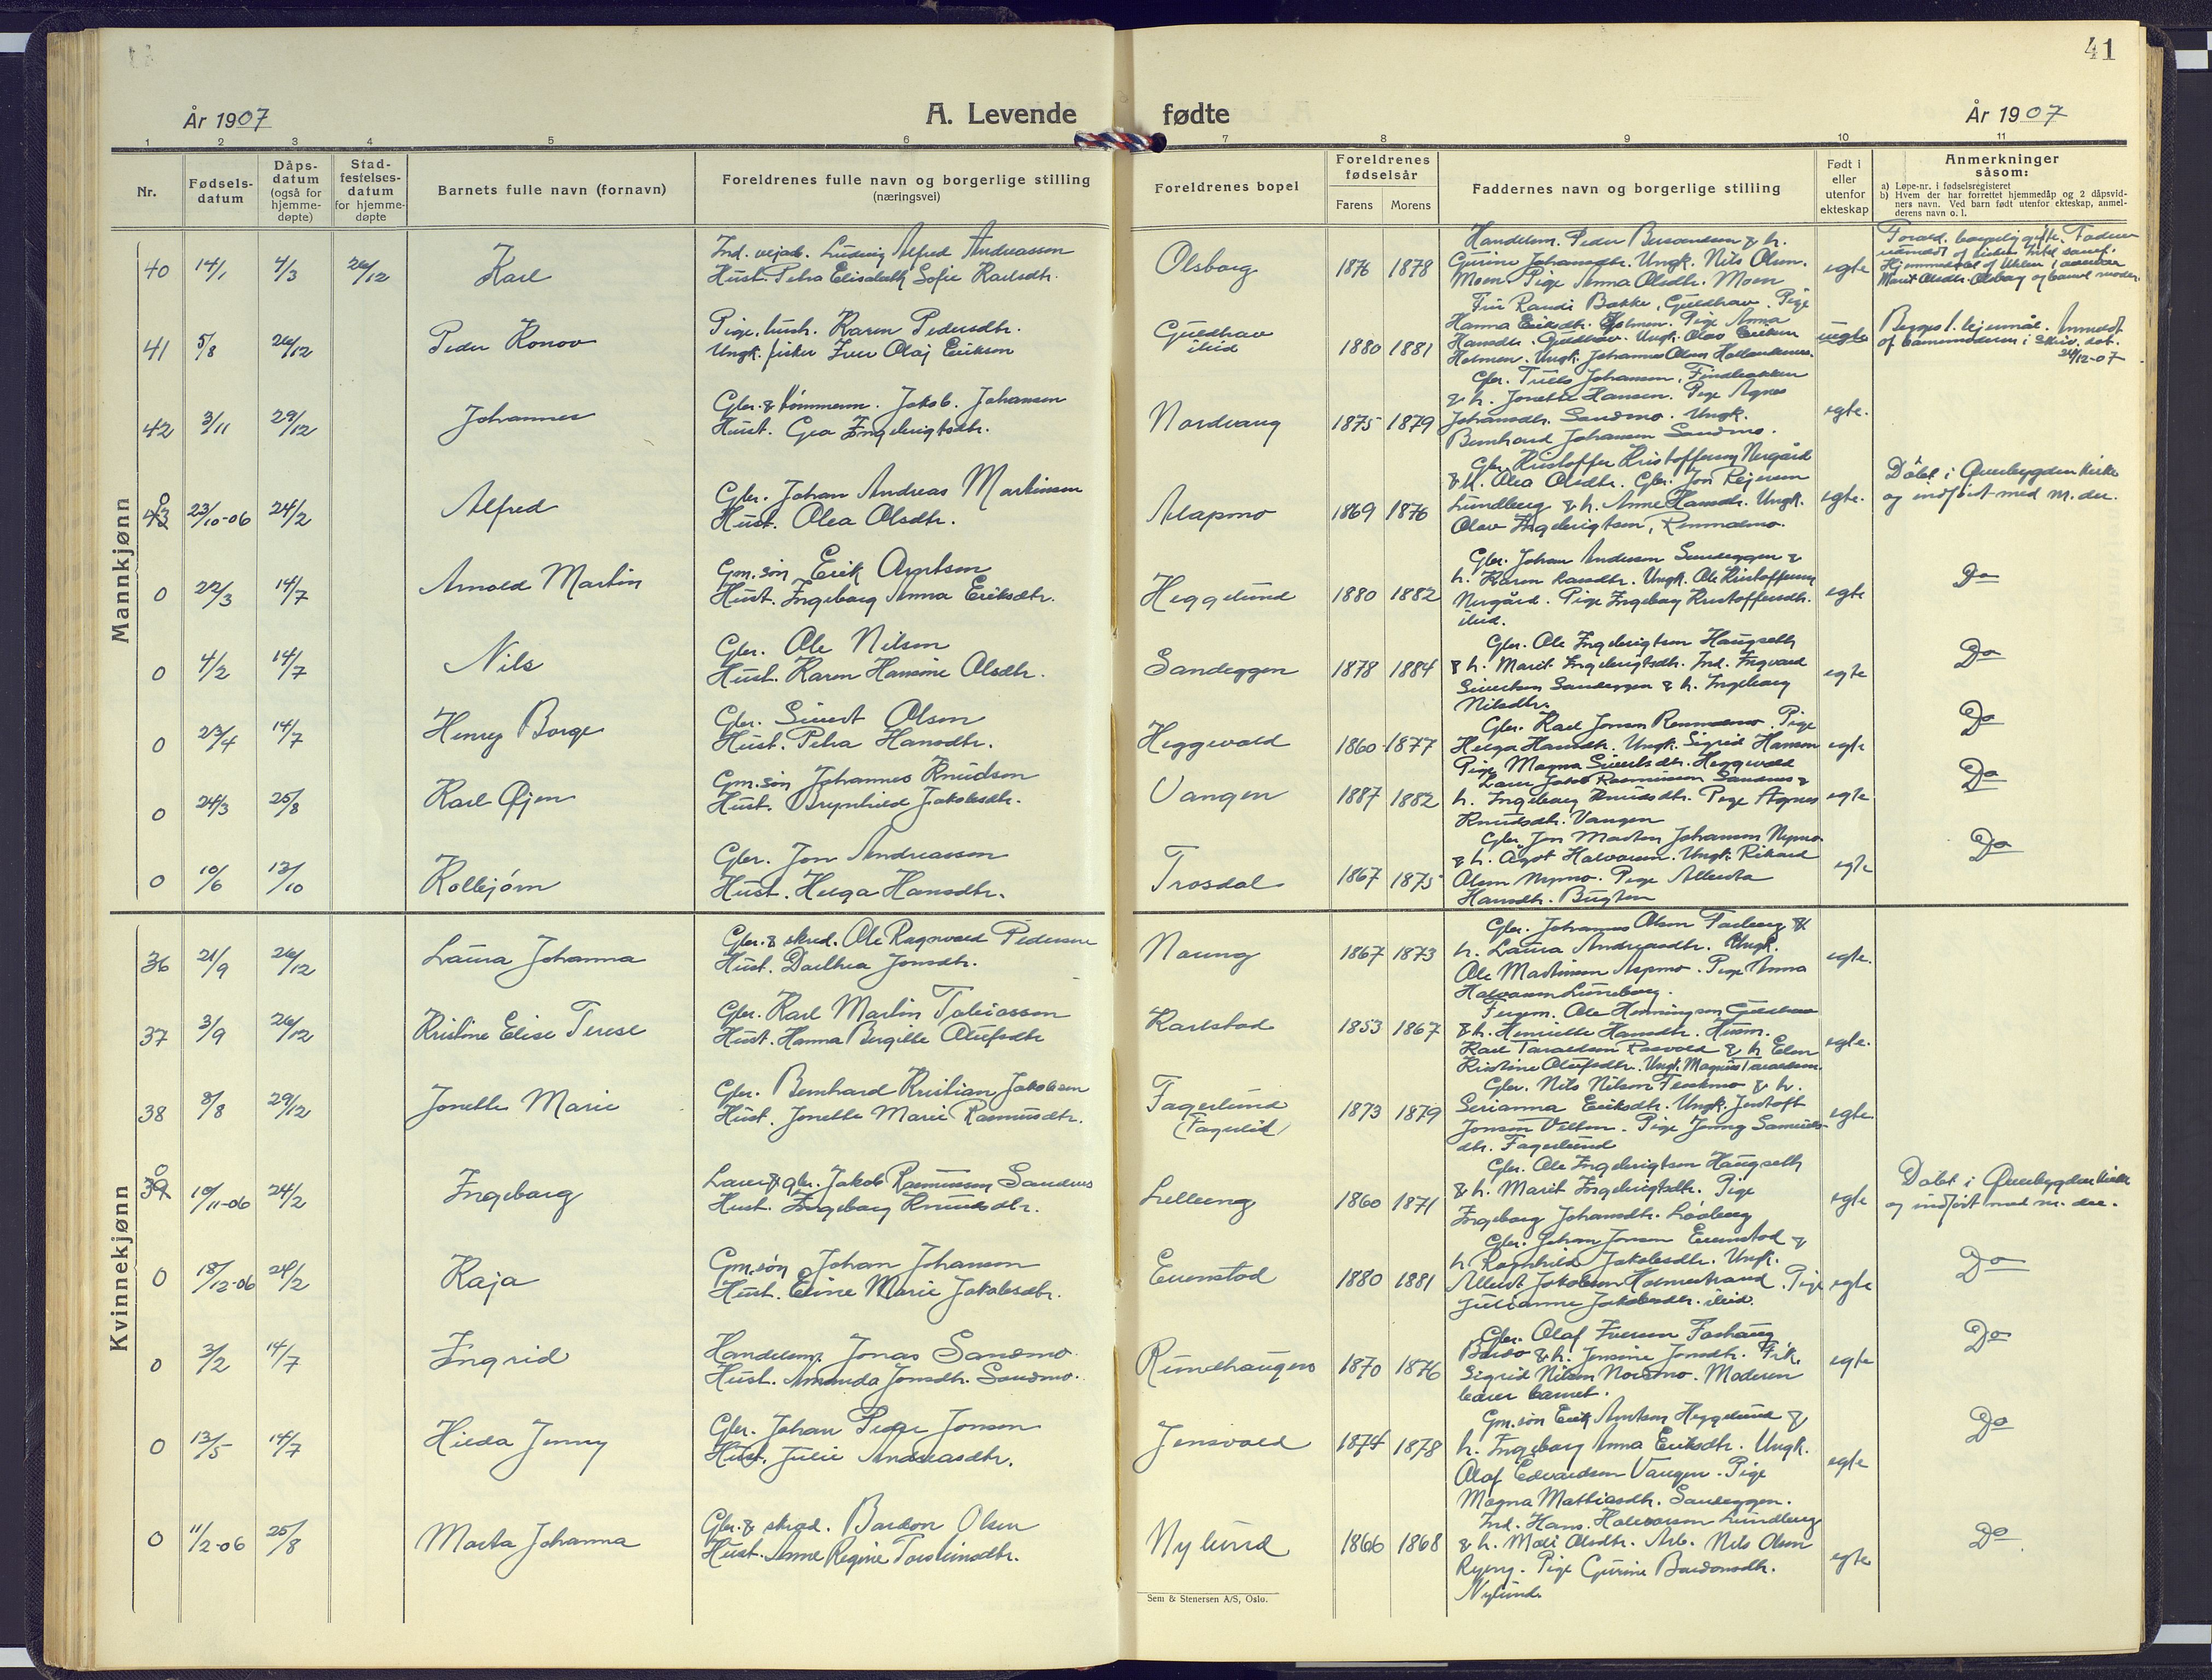 41
År 1907
A. Levende fødte
År 1907
1 2 3 4 5 6 7 8 9 10 11
Nr.
Fødsels-
datum
Dåps-
datum
(også for
hjemme-
døpte)
Stad-
festelses-
datum
for hjemme-
døpte
Barnets fulle navn (fornavn)
Foreldrenes fulle navn og borgerlige stilling
(næringsvei)
Foreldrenes bopel
Foreldrenes
fødselsår
Farens Morens
Faddernes navn og borgerlige stilling
Født i
eller
utenfor
ekteskap
Anmerkninger
såsom:
a) Løpe-nr. i fødselsregisteret
b) Hvem der har forrettet hjemmedåp og 2 dåpsvid-
ners navn. Ved barn født utenfor ekteskap, anmel-
derens navn o. l.
Mannkjønn
40 14/1 4/3 26/12 Karl
Ind. vejarb. Ludvig Alfred Andreassen
Hust. Petra Elisabeth Sofie Karlsdtr.
Olsborg 1876 1878
Handelsm. Peder Berntsen & h.
Gurine Johansdtr. Ungk. Nils Olsen
Moen. Pige Anna Olsdtr. Moen
egte
41 5/8 26/12 Peder Konov
Pige. hush. Karen Pedersdtr.
Ungk. fisker Iver Olaj Erikson
Guldhav
ibid 1880 1881
Frü Randi Bakke, Guldhav. Pige
Hanna Eriksdtr. Holmen. Pige Anna
Hansdtr. Guldhav. Ungk. Olav Erikson
Holmen. Ungk. Johannes Olsen
uegte
Begges 1. lejermål. Anmeldt
af barnemoderen i skriv. dat.
24/12-07
42 3/11 29/12 Johannes
Gbr. & tømmerm. Jakob Johansen
Hust. Gea Ingebrigtsdtr.
Nordvang 1875 1879
Gbr. Trüls Johansen, Findbakken
& h. Jonette Hansen. Pige Agnes
Johansdtr. Sandmo. Ungk.
Bernhard Johansen Sandmo.
egte.
0 43 23/10-06 24/2 Alfred
Gbr. Johan Andreas Martinsen
Hust. Olea Olsdtr.
Alapmo 1869 1876
Gbr. Kristoffer Kristoffersen Nergård
& h. Olea Olsdtr. Gbr. Jon Pejersen
Lundberg & h. Anne Hansdtr. Ungk.
Olav Ingebrigtsen, Renmælmo.
egte.
Døbt i Øverbygden kirke
og indført med m. der.
0 22/3 14/7 Arnold Martin
Gm.søn Erik Arntsen
Hust. Ingeborg Anna Eriksdtr.
Heggelund 1880 1882
Gbr. Johan Andersen Sandeggen &
h. Karen Larsdtr. Ungk. Ole Kristoffersen
Nergård. Pige Ingeborg Kristoffersdtr.
ibid.
egte
Do
0 4/2 14/7 Nils
Gbr. Ole Nilsen
Hust. Karen Hansine Olsdtr.
Sandeggen 1878 1884
Gbr. Ole Ingebrigtsen Haugseth
& h. Marit Ingebrigtsdtr. Ind. Ingvard
Sivertsen Sandeggen & h. Ingeborg
Nilsdtr.
egte
Do
0 23/4 14/7 Henry Borge
Gbr. Sivert Olsen
Hust. Petra Hansdtr.
Heggevold 1860 1877
Gbr. Karl Jonsen Renmælmo. Pige
Helga Hansdtr. Ungk. Sigrid Hansen
Pige Magna Sivertsdtr. Heggevold
egte
Do
0 24/3 25/8 Karl Øjen
Gm.søn Johannes Knudsen
Hust. Brynhild Jakobsdtr.
Vangen 1887 1882
Lærer Jakob Rasmussen Sandnes &
h. Ingeborg Knudsdtr. Pige Agnes
Knudsdtr. Vangen
egte
Do
0 10/6 13/10 Kolbjørn
Gbr. Jon Andreassen
Hust. Helga Hansdtr.
Trosdal 1867 1875
Gbr. Jon Morten Johansen Nymo
& h. Ågot Halvorsen. Ungk. Rikard
Olsen Nymo. Pige Alberta
Hansdtr. Bugten
egte
Do
Kvinnekjønn
36 21/9 26/12 Laura Johanna
Gbr. & skred. Ole Ragnvald Pedersen
Hust. Dorthea Jonsdtr.
Moung 1867 1873
Gbr. Johannes Olsen Forberg &
h. Laura Andreasdtr. Ungk.
Ole Martinsen Aspmo. Pige Anna
Halvorsen Luneborg.
egte.
37 3/9 26/12 Kristine Elise Terese
Gbr. Karl Martin Tobiassen
Hust. Hanna Bergitte Olufsdtr
Karlstad 1853 1867
Fergem. Ole Henningsen Guldhav
& h. Henriette Hansdtr. Husm.
Karl Taraldsen Rosvold & h. Elen
Kristine Olufsdtr. Ungk. Magnus Taraldsen
egte.
38 8/8 29/12 Jonette Marie
Gbr. Bernhard Kristian Jakobsen
Hust. Jonette Marie Rasmusdtr.
Fagerlund
(Fagerlid) 1873 1879
Gbr. Nils Nilsen Fleskmo & h.
Serianna Eriksdtr. Ungk. Jentoft
Jonsen Velten. Pige Jenny Samuels-
dtr. Fagerlund
egte
0 39 10/11-06 24/2 Ingeborg
Lærer & gbr. Jakob Rasmussen Sandnes
Hust. Ingeborg Knudsdtr.
Lilleeng 1860 1871
Gbr. Ole Ingebrigtsen Haugseth
& h. Marit Ingebrigtsdtr. Pige
Ingeborg Johansdtr. Løvberg
egte
Døbt i Øverbygden kirke
og indført med m. der.
0 18/12-06 24/2 Kaja
Gm.søn Johan Johansen
Hust. Eline Marie Jakobsdtr.
Evenstad 1880 1881
Gbr. Johan Jonsen Evenstad &
h. Raghhild Jakobsdtr. Ungk.
Albert Jakobsen Holmestrand. Pige
Julianne Jakobsdtr. ibid.
egte
Do
0 3/2 14/7 Ingrid
Handelsm. Jonas Sandmo.
Hust. Amanda Jonsdtr. Sandmo.
Rundhaugen 1870 1876
Gbr. Olaf Iversen Foshaug
Bardo & h. Jensine Jonsdtr. Frk.
Sigrid Nilsen Nordmo. Moderen
bærer barnet.
egte
Do
0 13/5 14/7 Hilda Jenny
Gbr. Johan Peder Jonsen
Hust. Julie Andreasdtr.
Jensvold 1874 1878
Gm.søn Erik Arntsen Heggelund &
h. Ingeborg Anna Eriksdtr. Ungk.
Olaf Edvardsen Vangen. Pige
Magna Mathiasdtr. Sandeggen.
egte
Do
0 11/2-06 25/8 Marta Johanna
Gbr. & skred. Bardon Olsen
Hust. Anne Regine Torsteinsdtr.
Nylund 1866 1868
Ind. Hans Halvorsen Lundberg
& h. Mali Olsdtr. Arb. Nils Olsen
Ryeng. Pige Gurine Bardonsdtr.
Nylund
egte
Do
Sem & Stenersen A/S, Oslo.